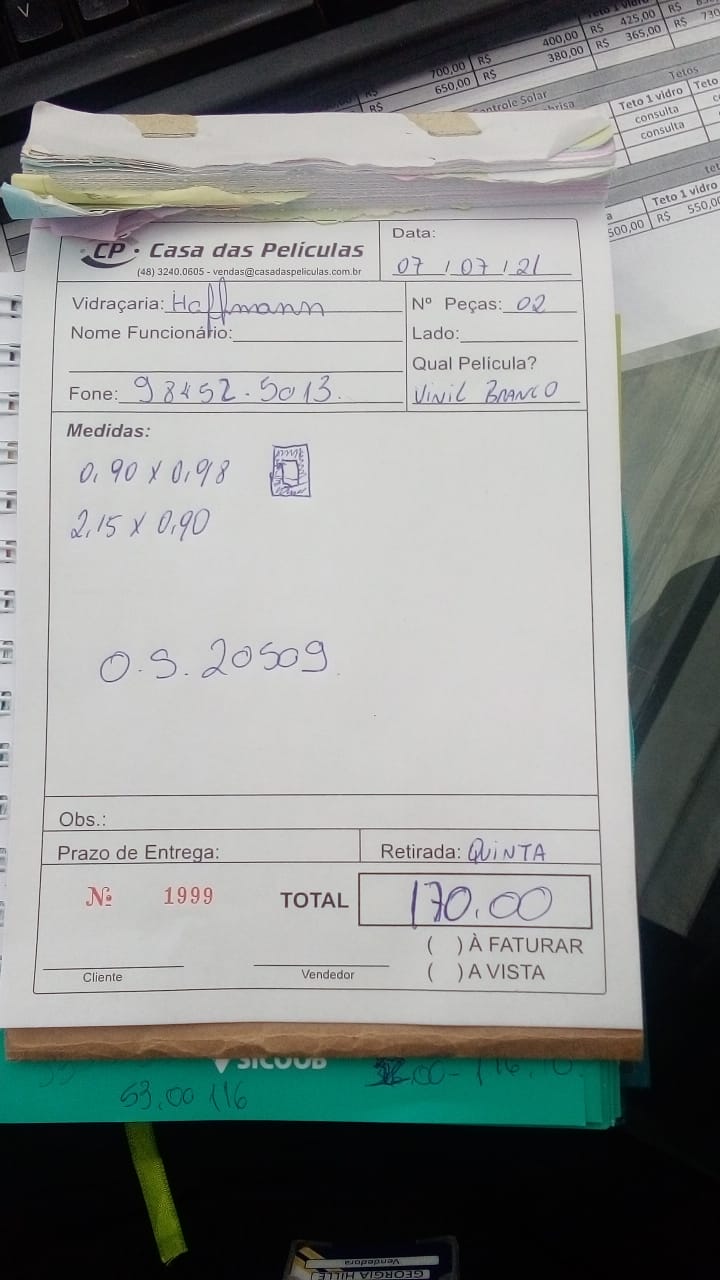 V
Teto 1 vidro
700,00 R$ 400,00 R$ 425,00 R$
R$ 650,00 R$ 380,00 R$ 365,00 R$ 730
Controle Solar
Tetos
Teto 1 vidro Teto
consulta
consulta
Teto 1 vidro
500,00 R$ 550,00
CP Casa das Películas
(48) 3240.0605 - vendas@casadaspeliculas.com.br
Data:
07/07/21
Vidraçaria: Haffmann
Nº Peças: 02
Nome Funcionário:
Lado:
Qual Película?
Fone: 98452.5013.
VINIL BRANCO
Medidas:
0,90 X 0,98
2,15 X 0,90
O.S. 20509
Obs.:
Prazo de Entrega:
Retirada: QUINTA
Nº 1999
TOTAL 170.00
( ) À FATURAR
( ) A VISTA
Cliente
Vendedor
SICOOB
53,00 116
Vendedora
GEORGIA HILLE